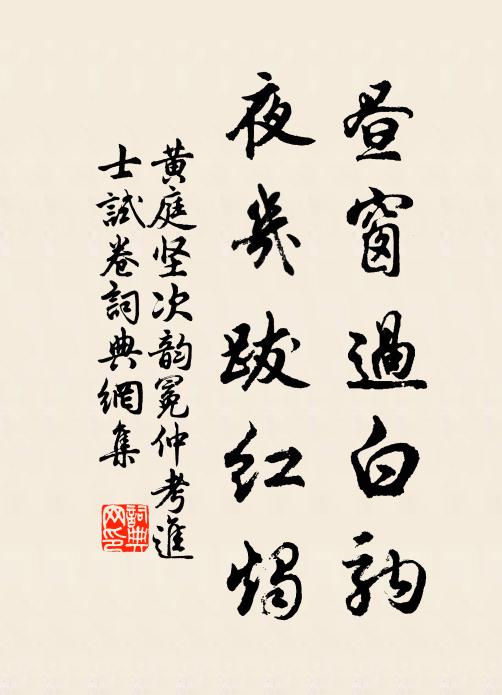 昼窗過白駒
夜幾跋紅燭
黄庭坚次韵冕仲考進
士試卷詞典網集
詞典
网印